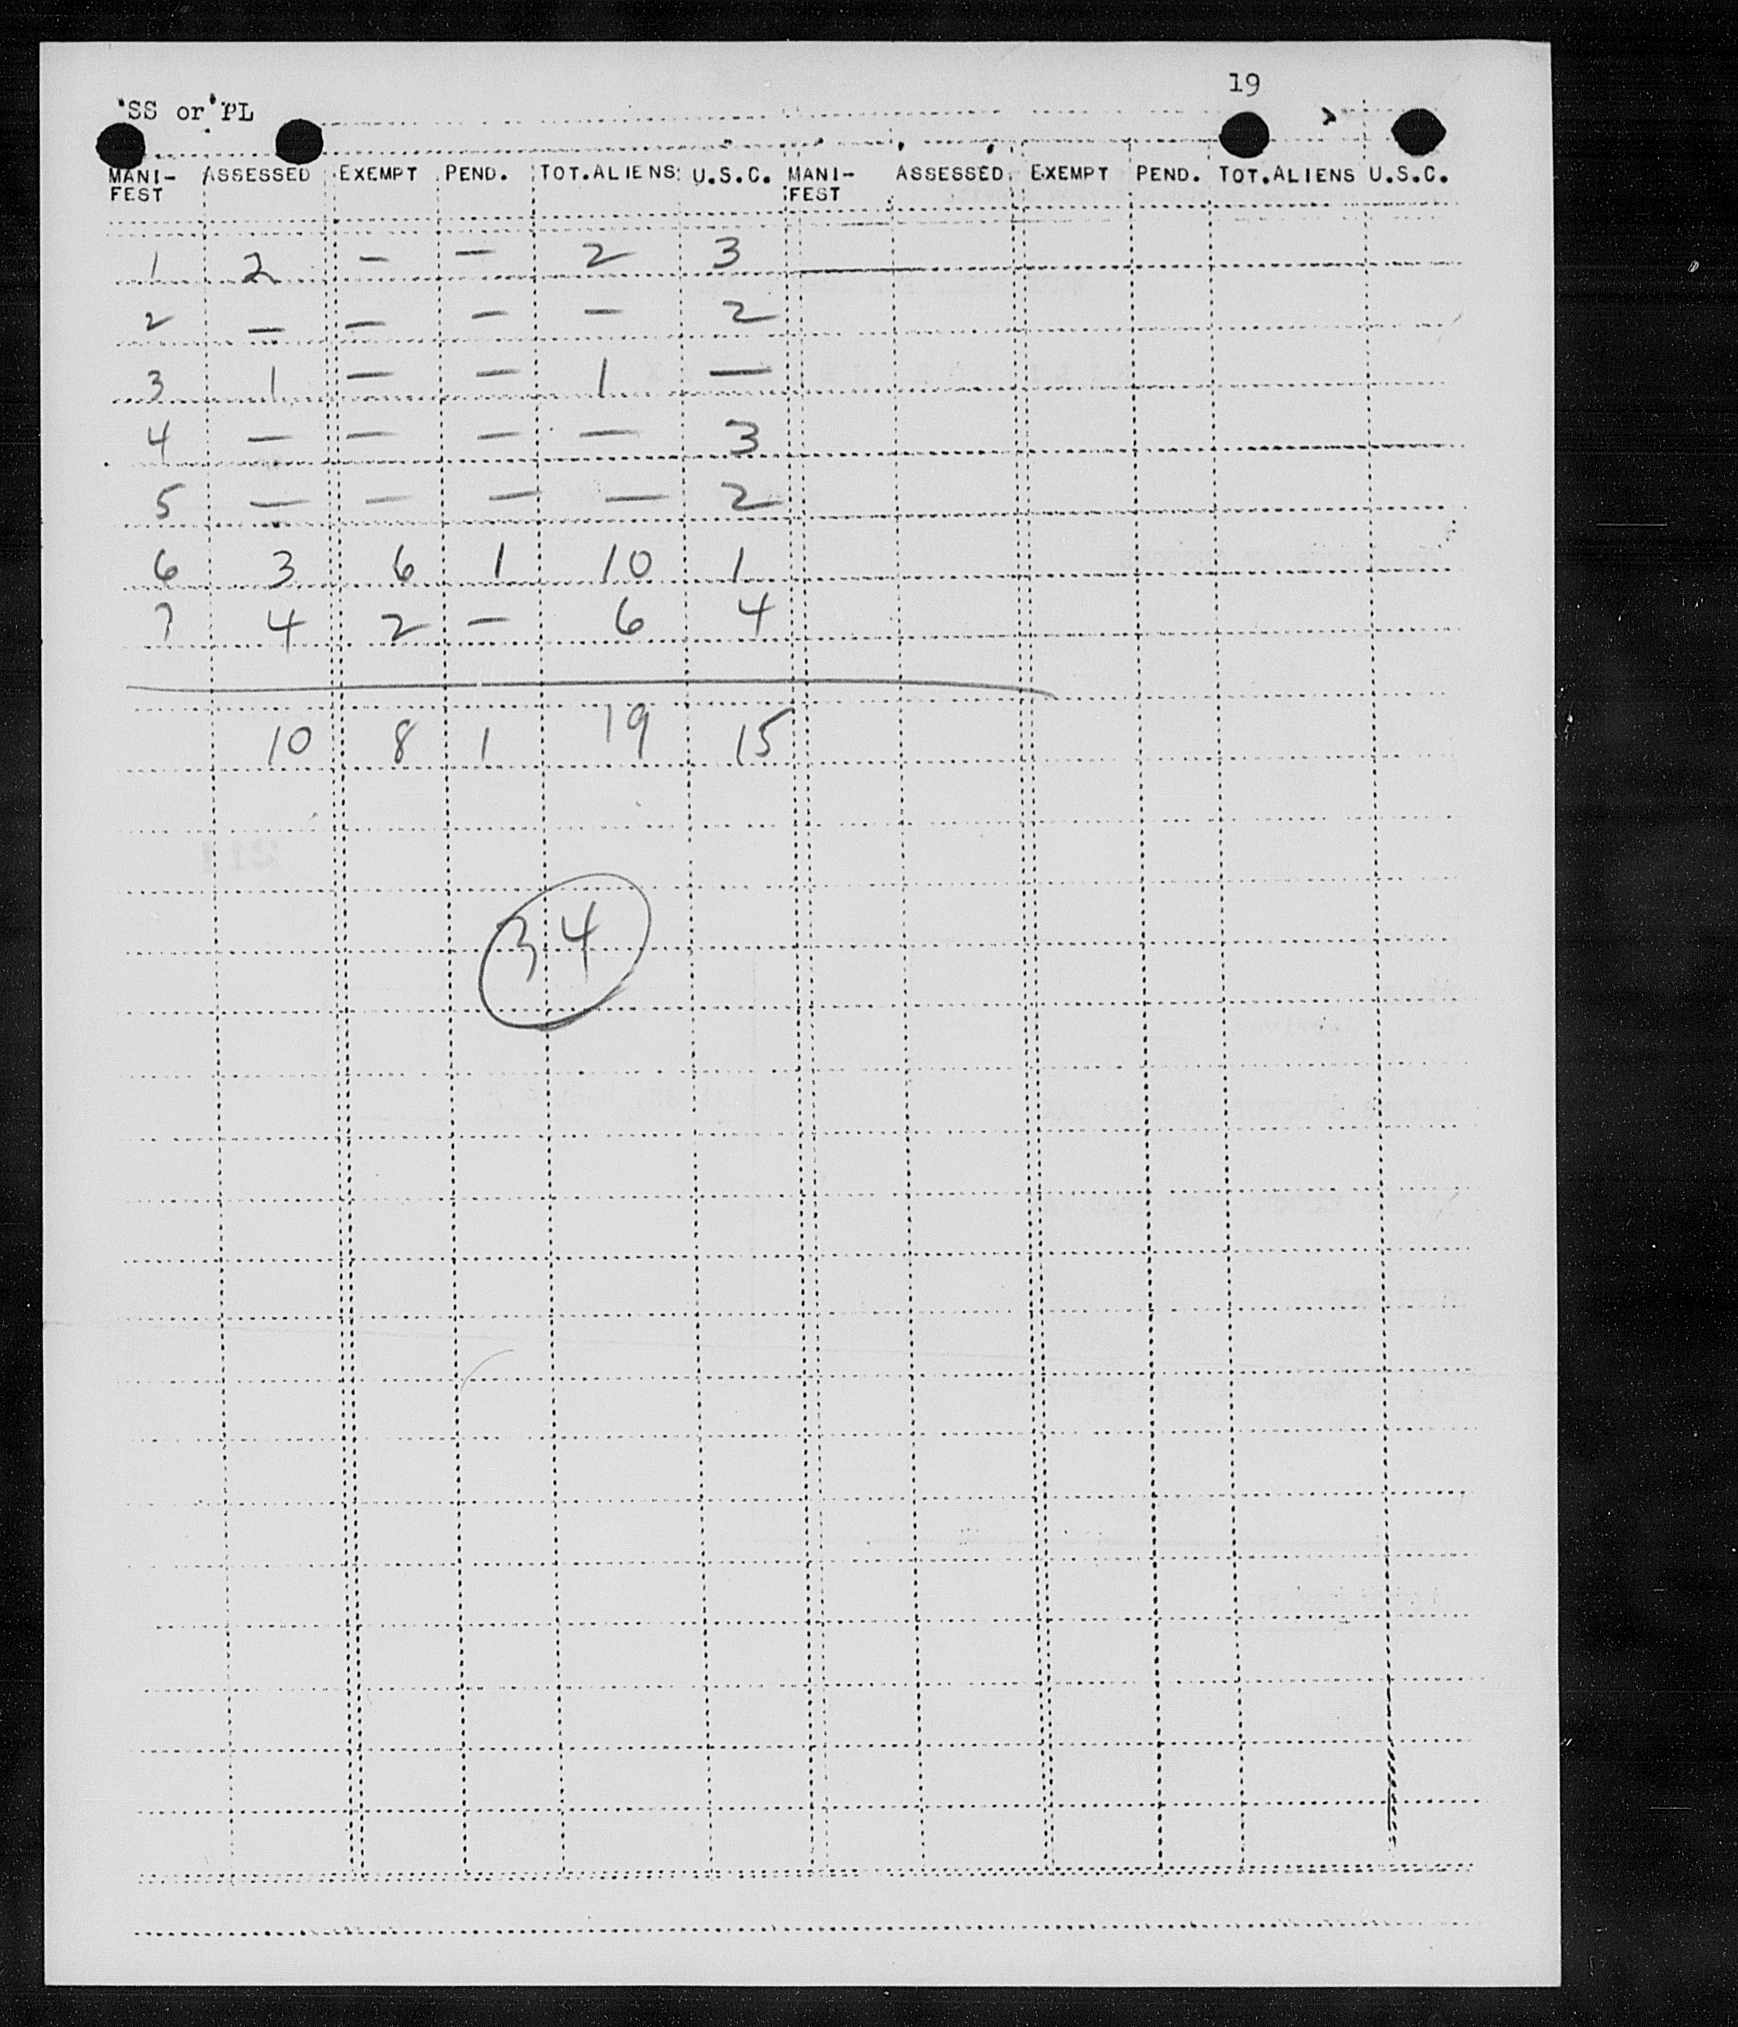 19
SS or PL
MANI-FEST ASSESSED EXEMPT PEND. TOT.ALIENS U.S.C. MANI-FEST ASSESSED EXEMPT PEND. TOT.ALIENS U.S.C.
1 2 — — 2 3
2 — — — — 2
3 1 — — 1 —
4 — — — — 3
5 — — — — 2
6 3 6 1 10 1
7 4 2 — 6 4
10 8 1 19 15
34